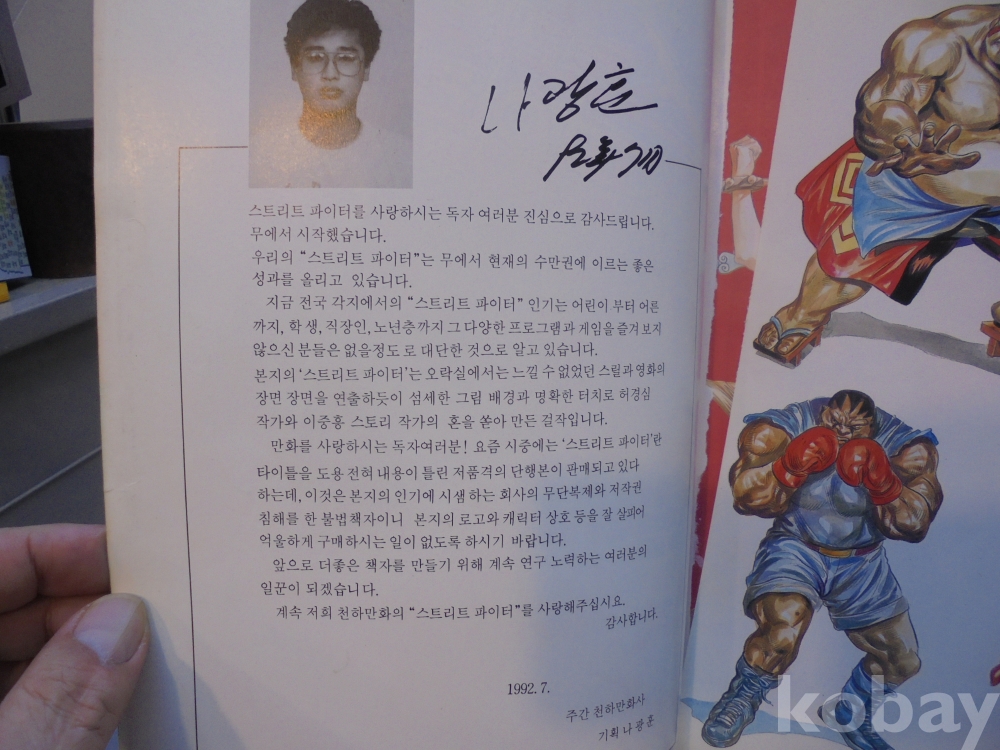 나광훈
스트리트 파이터를 사랑하시는 독자 여러분 진심으로 감사드립니다.
무에서 시작했습니다.
우리의 “스트리트 파이터”는 무에서 현재의 수만권에 이르는 좋은
성과를 올리고 있습니다.
지금 전국 각지에서의 “스트리트 파이터” 인기는 어린이 부터 어른
까지, 학생, 직장인, 노년층까지 그 다양한 프로그램과 게임을 즐겨 보지
않으신 분들은 없을정도 로 대단한 것으로 알고 있습니다.
본지의 ‘스트리트 파이터’는 오락실에서는 느낄 수 없었던 스릴과 영화의
장면 장면을 연출하듯이 섬세한 그림 배경과 명확한 터치로 허경심
작가와 이중흥 스토리 작가의 혼을 쏟아 만든 걸작입니다.
만화를 사랑하시는 독자여러분! 요즘 시중에는 ‘스트리트 파이터’란
타이틀을 도용 전혀 내용이 틀린 저품격의 단행본이 판매되고 있다
하는데, 이것은 본지의 인기에 시샘 하는 회사의 무단복제와 저작권
침해를 한 불법책자이니 본지의 로고와 캐릭터 상호 등을 잘 살피어
억울하게 구매하시는 일이 없도록 하시기 바랍니다.
앞으로 더좋은 책자를 만들기 위해 계속 연구 노력하는 여러분의
일꾼이 되겠습니다.
계속 저희 천하만화의 “스트리트 파이터”를 사랑해주십시요.
감사합니다.
1992. 7.
주간 천하만화사
기획 나 광 훈
kobay